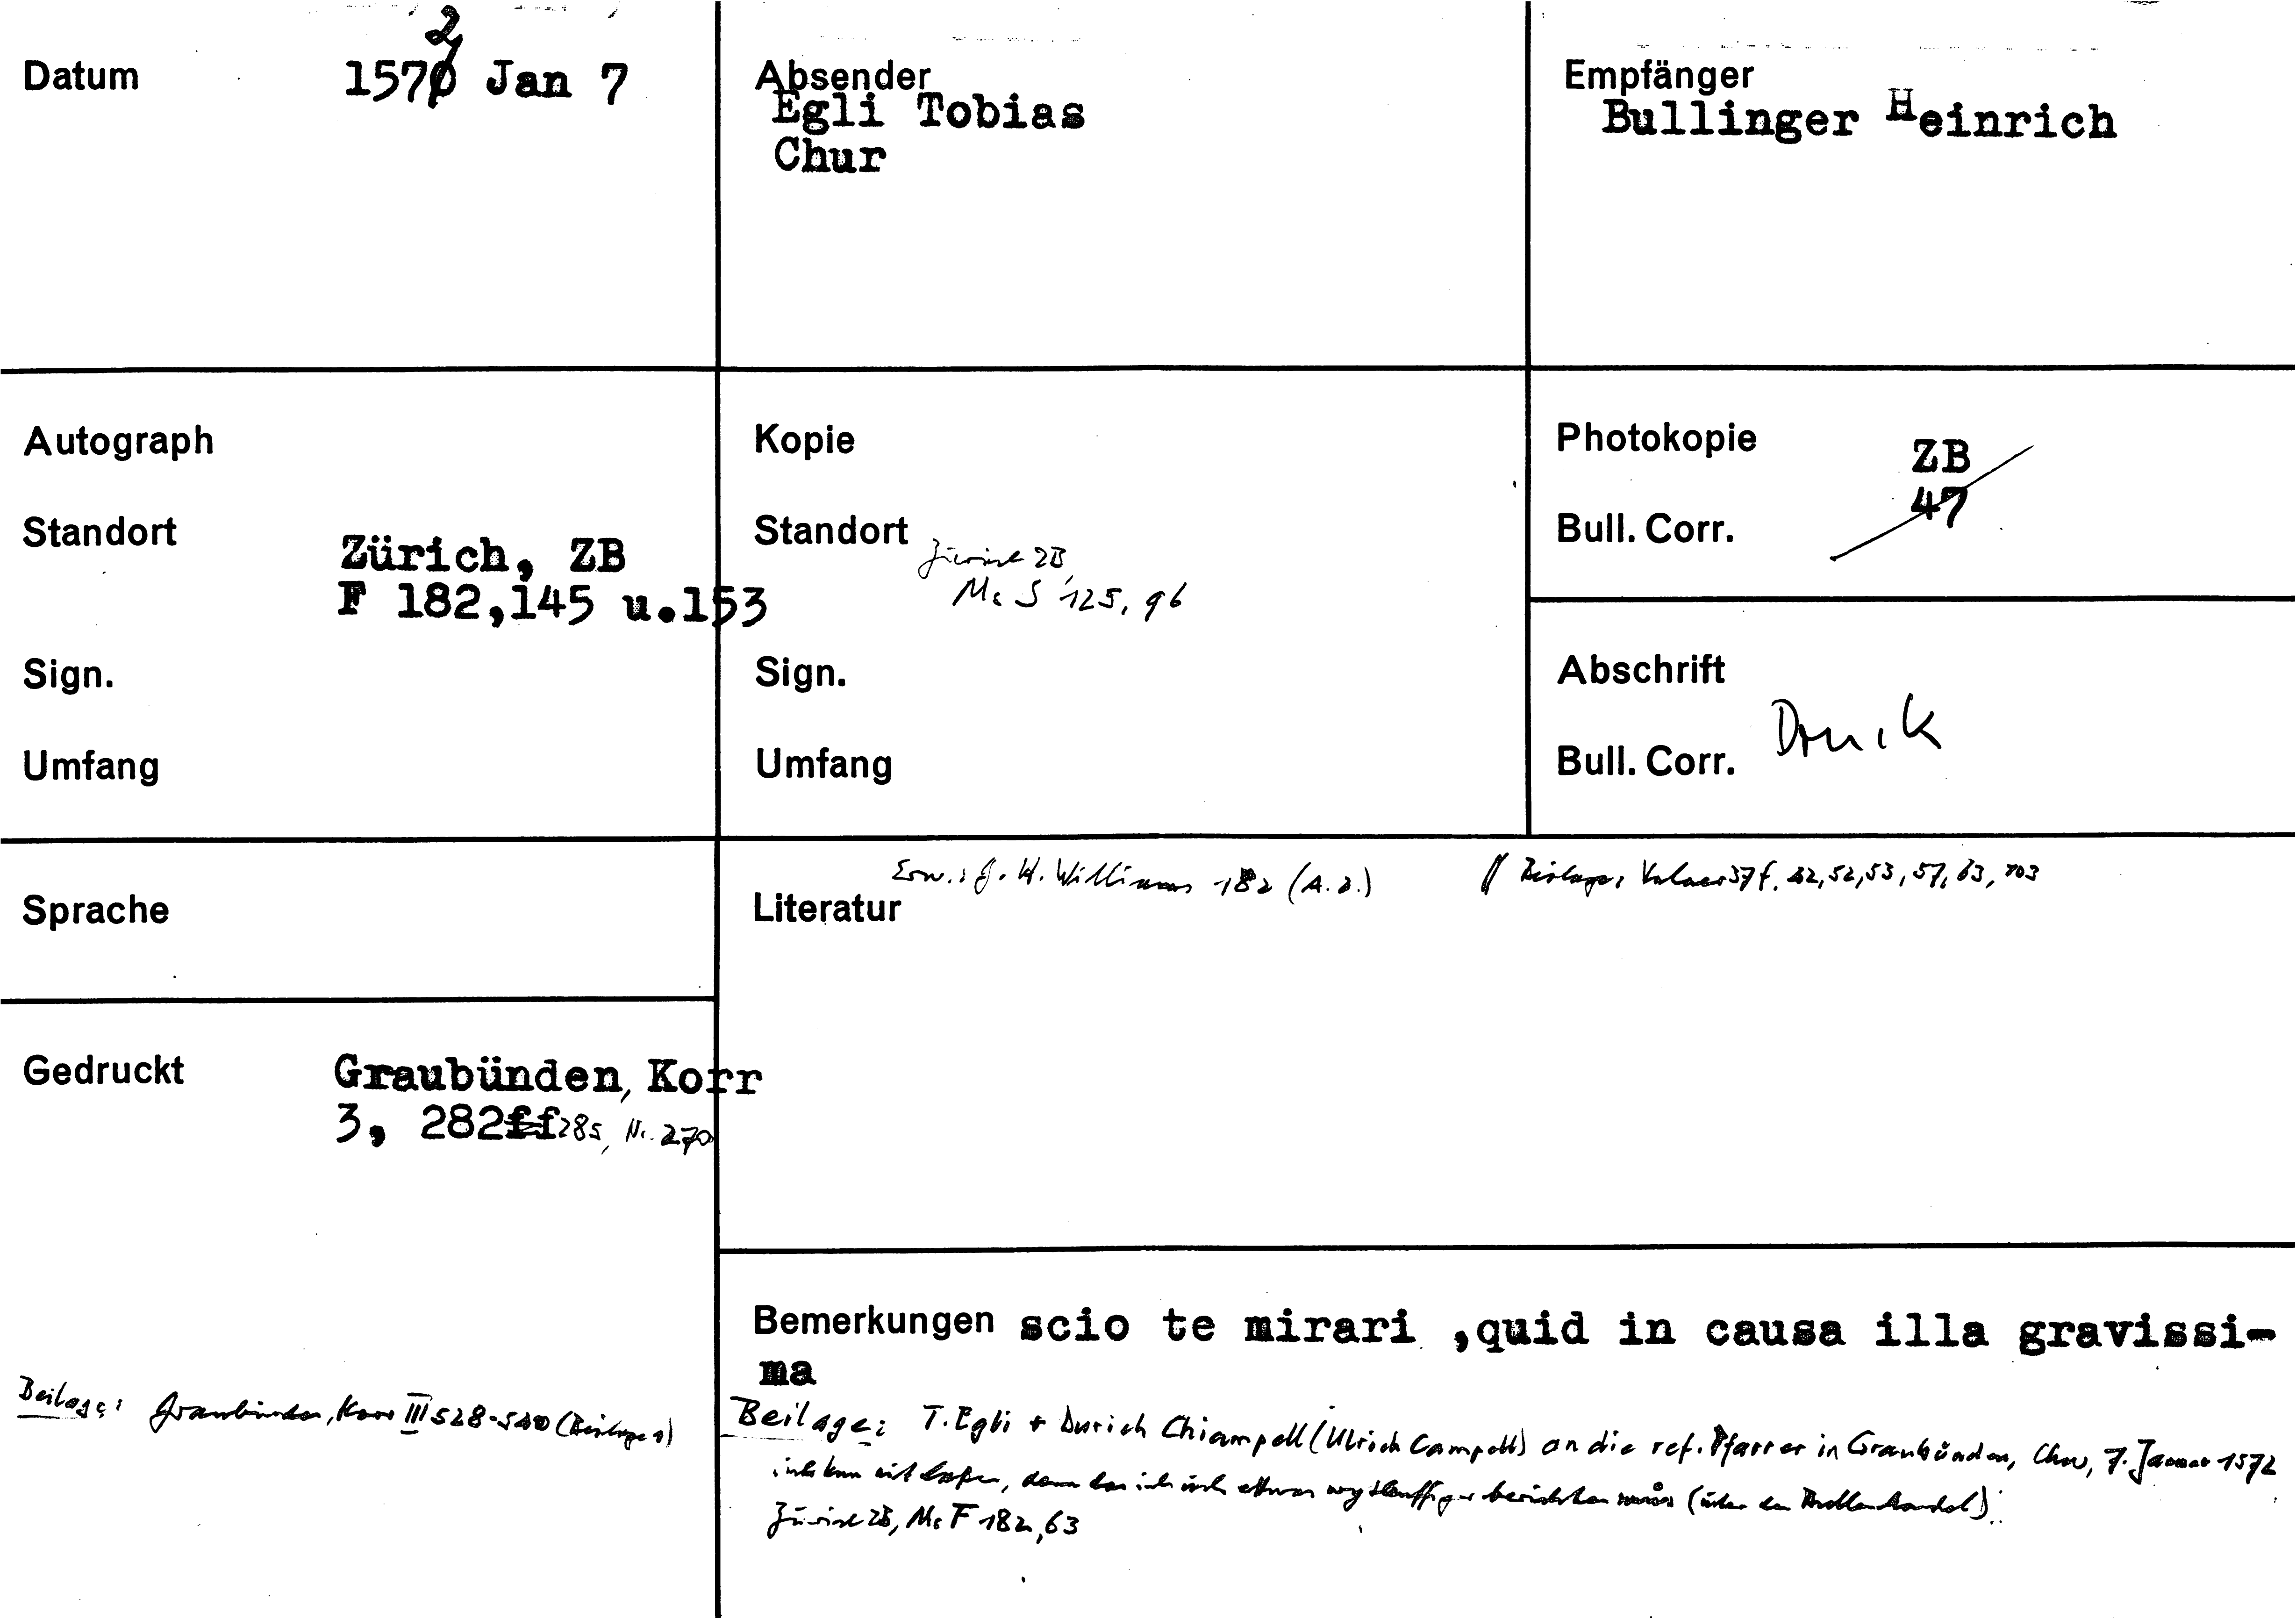 Datum 1572 Jan 7
Absender
Egli Tobias
Chur
Empfänger
Bullinger Heinrich
Autograph
Standort Zürich, ZB
F 182,145 u.153
Sign.
Umfang
Kopie
Standort Zürich ZB
Ms S 125, 96
Sign.
Umfang
Photokopie ZB
47
Bull. Corr.
Abschrift
Druck
Bull. Corr.
Sprache
Erw.: G. H. Williams 182 (A. 2.) // Beilage: 37 f. 42, 52, 53, 57, 63, 103
Literatur
Gedruckt Graubünden, Korr
3, 282ff 285, Nr. 270
Beilage: Graubünden, Korr III 528-540 (Beilage 1)
Bemerkungen scio te mirari ,quid in causa illa gravissi-
ma
Beilage: T. Egli + Durich Chiampell (Ulrich Campell) an die ref. Pfarrer in Graubünden, Chur, 7. Januar 1572
etwas berichten
Zürich ZB, Ms F 182, 63